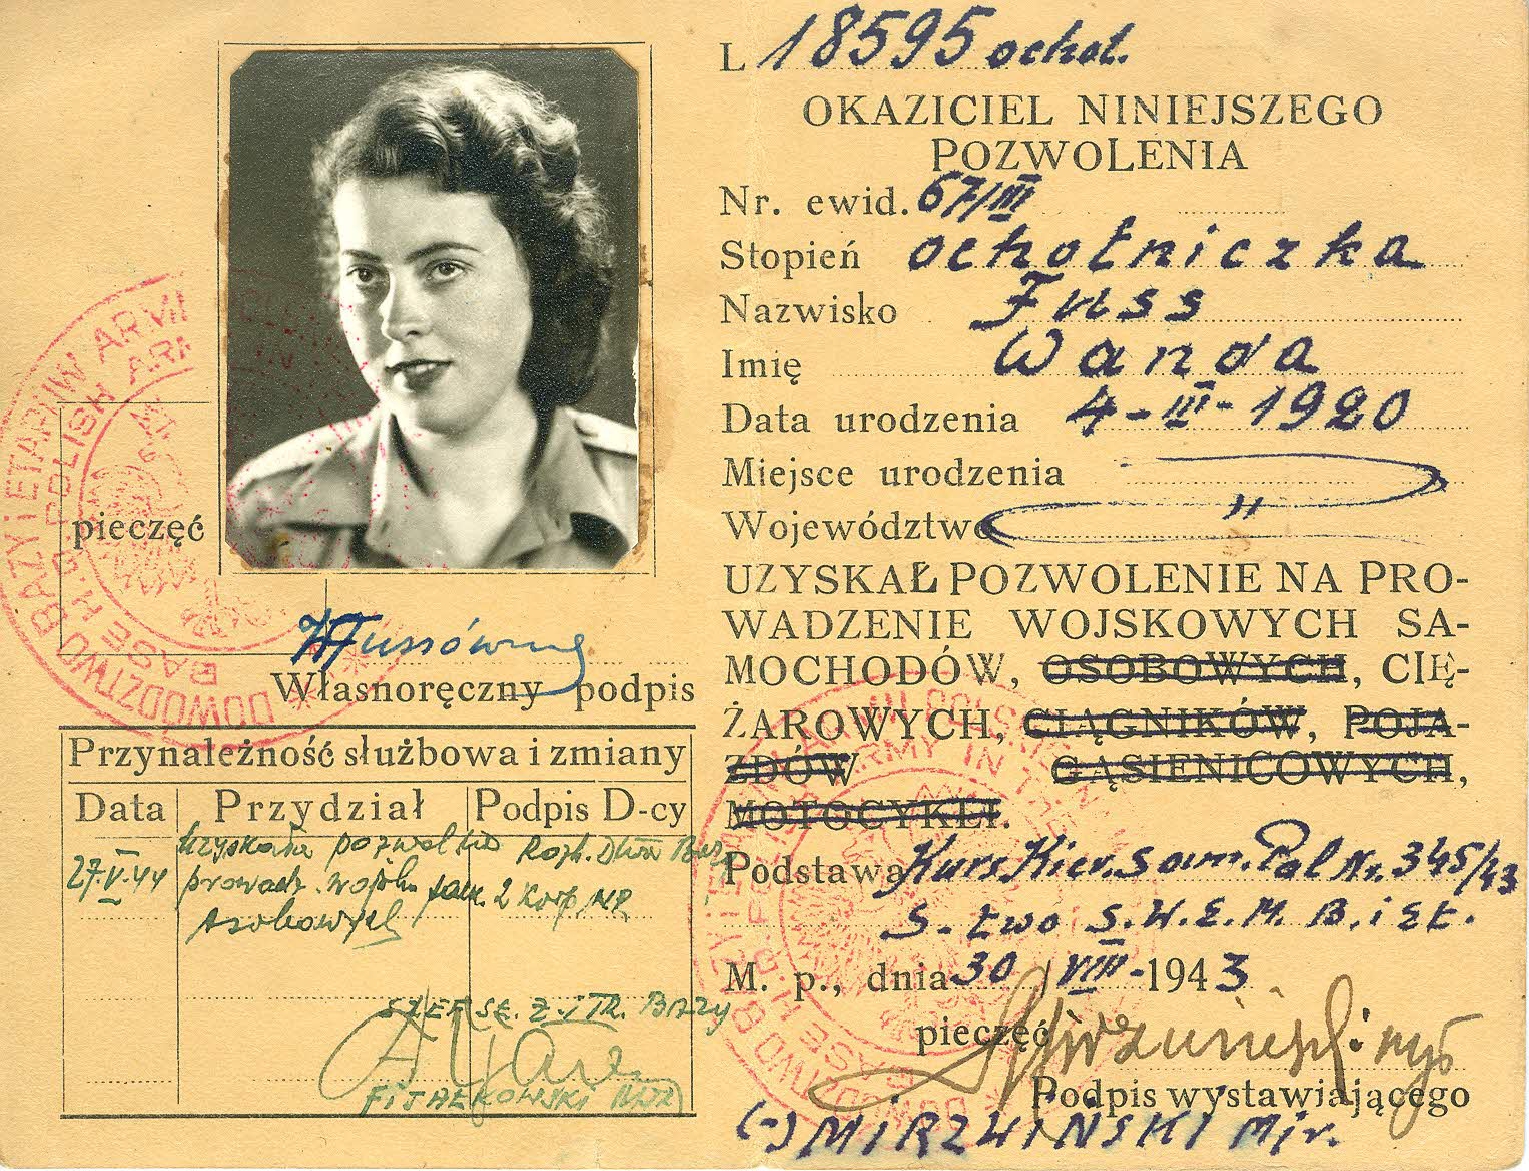 DOWÓDZTWO BAZY i ETAPÓW ARMII
BASE H.Q. POLISH ARM
pieczęć
WFussówna
Własnoręczny podpis
Przynależność służbowa i zmiany
Data Przydział Podpis D-cy
27.V.44
Uzyskała pozwolenie
prowadz. wojsk. sam.
osobowych
Rozk. Dtwa Bazy
2 Korp. NR
SZEF SŁ. Ż. i TR. BAZY
FIJAŁKOWSKI
L 18595 ochot.
OKAZICIEL NINIEJSZEGO
POZWOLENIA
Nr. ewid. 67/III
Stopień ochotniczka
Nazwisko Fuss
Imię Wanda
Data urodzenia 4-III-1920
Miejsce urodzenia
Województwo "
UZYSKAŁ POZWOLENIE NA PRO-
WADZENIE WOJSKOWYCH SA-
MOCHODÓW, OSOBOWYCH, CIĘ-
ŻAROWYCH, CIĄGNIKÓW, POJA-
ZDÓW GĄSIENICOWYCH,
MOTOCYKLI.
Podstawa Kurs Kier. sam. Pol Nr. 345/43
S-two S.W.E.M. B. i Et.
M. p., dnia 30 VIII-1943
pieczęć
Podpis wystawiającego
(-) MIRZWIŃSKI Mjr.